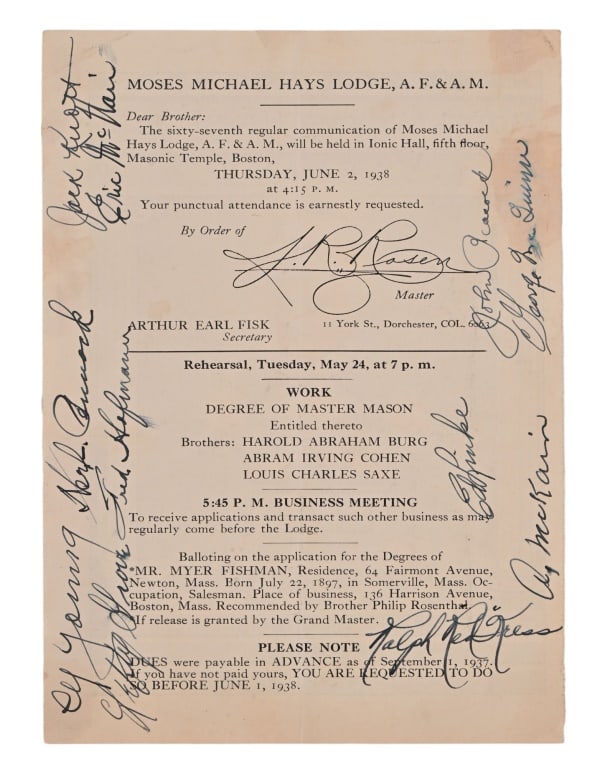 MOSES MICHAEL HAYS LODGE, A. F. & A. M.
Dear Brother:
The sixty-seventh regular communication of Moses Michael
Hays Lodge, A. F. & A. M., will be held in Ionic Hall, fifth floor,
Masonic Temple, Boston,
THURSDAY, JUNE 2, 1938
at 4:15 P. M.
Your punctual attendance is earnestly requested.
By Order of
J. R. Rosen
Master
ARTHUR EARL FISK
Secretary
11 York St., Dorchester, COL. 6063
Rehearsal, Tuesday, May 24, at 7 p. m.
WORK
DEGREE OF MASTER MASON
Entitled thereto
Brothers: HAROLD ABRAHAM BURG
ABRAM IRVING COHEN
LOUIS CHARLES SAXE
5:45 P. M. BUSINESS MEETING
To receive applications and transact such other business as may
regularly come before the Lodge.
Balloting on the application for the Degrees of
*MR. MYER FISHMAN, Residence, 64 Fairmont Avenue,
Newton, Mass. Born July 22, 1897, in Somerville, Mass. Oc-
cupation, Salesman. Place of business, 136 Harrison Avenue,
Boston, Mass. Recommended by Brother Philip Rosenthal.
*If release is granted by the Grand Master.
PLEASE NOTE
DUES were payable in ADVANCE as of September 1, 1937.
If you have not paid yours, YOU ARE REQUESTED TO DO
SO BEFORE JUNE 1, 1938.
Jack Knott
Eric McNair
Herb. Pennock
Fred Hofmann
Cy Young
Lefty Grove
John Peacock
George McQuinn
Ed Linke
McKain
Ralph "Red" Kress